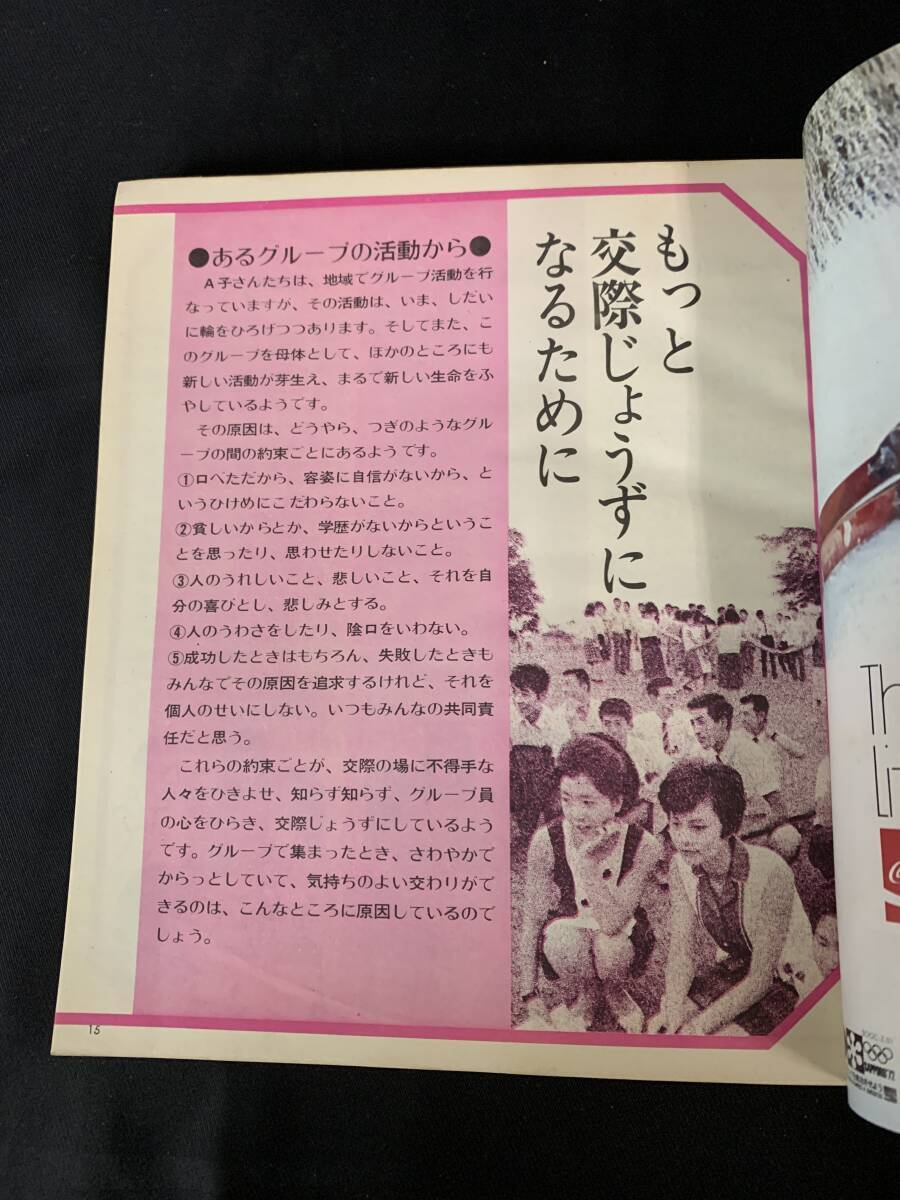 もっと
交際じょうずに
なるために
●あるグループの活動から●
A子さんたちは、地域でグループ活動を行
なっていますが、その活動は、いま、しだい
に輪をひろげつつあります。そしてまた、こ
のグループを母体として、ほかのところにも
新しい活動が芽生え、まるで新しい生命をふ
やしているようです。
その原因は、どうやら、つぎのようなグル
ープの間の約束ごとにあるようです。
①口べただから、容姿に自信がないから、と
いうひけめにこだわらないこと。
②貧しいからとか、学歴がないからというこ
とを思ったり、思わせたりしないこと。
③人のうれしいこと、悲しいこと、それを自
分の喜びとし、悲しみとする。
④人のうわさをしたり、陰口をいわない。
⑤成功したときはもちろん、失敗したときも
みんなでその原因を追求するけれど、それを
個人のせいにしない。いつもみんなの共同責
任だと思う。
これらの約束ごとが、交際の場に不得手な
人々をひきよせ、知らず知らず、グループ員
の心をひらき、交際じょうずにしているよう
です。グループで集まったとき、さわやかで
からっとしていて、気持ちのよい交わりがで
きるのは、こんなところに原因しているので
しょう。
15
Th